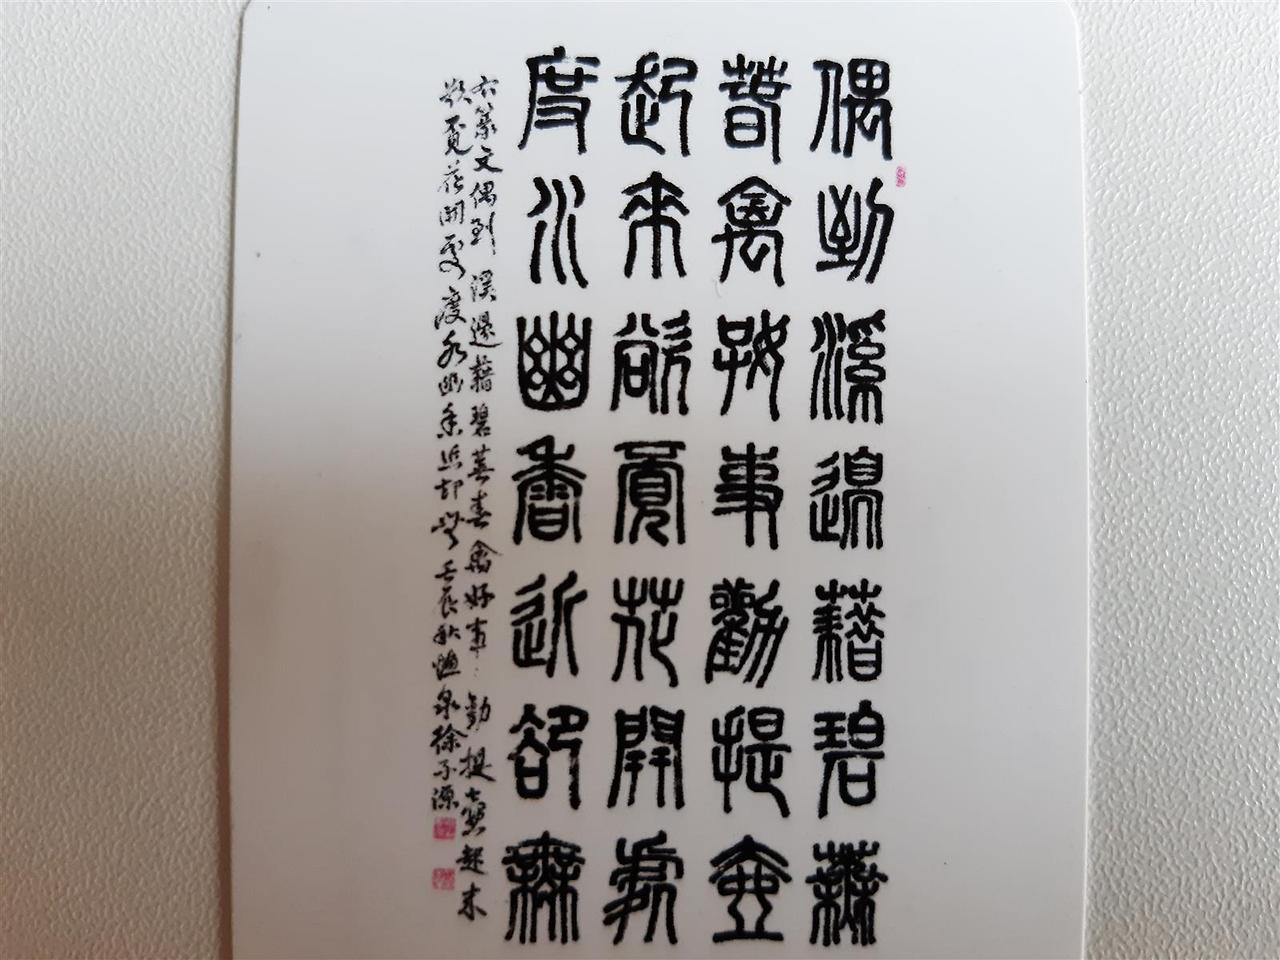 偶到溪邊藉碧蕪
春禽好事勸提壺
起來欲覓花開處
度水幽香近卻無
右篆文偶到溪邊藉碧蕪春禽好事勸提壺起來
欲覓花開處度水幽香近却無壬辰秋漁泉徐子源